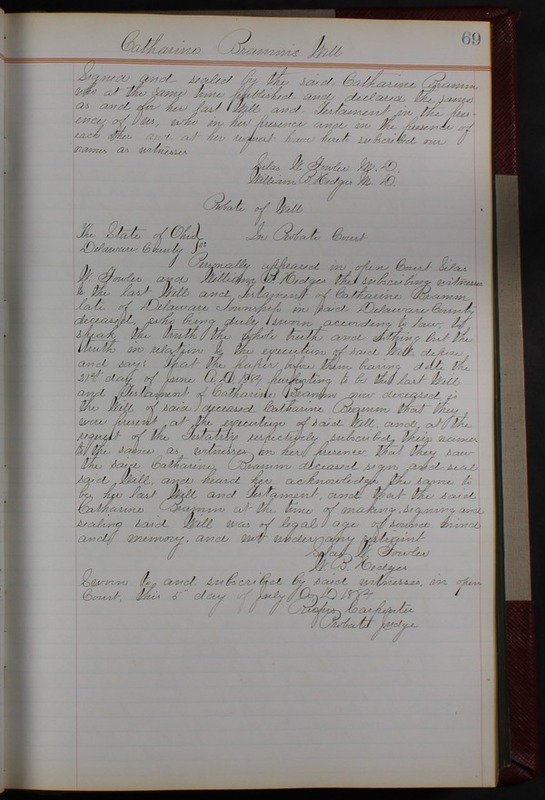 69
Catharine Bramms Will
Signed and sealed by the said Catharine Bramm
who at the same time published and declared the same
as and for her last Will and Testament in the pres-
ence of us, who in her presence and in the presence of
each other and at her request have here subscribed our
names as witnesses
Silas W. Fowler M. D.
William B. Hedges M. D.
Probate of Will
The State of Ohio
Delaware County } ss In Probate Court
Personally appeared in open Court Silas
W. Fowler and William B. Hedges the subscribing witnesses
to the last Will and Testament of Catharine Bramm
late of Delaware Township in said Delaware County
deceased, who being duly sworn according to law, to
speak the truth the whole truth and nothing but the
truth in relation to the execution of said Will, depose
and say: that the paper before them bearing date the
21st day of June A. D. 1884 purporting to be the last Will
and Testament of Catharine Bramm now deceased is
the Will of said deceased Catharine Bramm that they
were present at the execution of said Will, and, at the
request of the Testatrix respectively subscribed their names
to the same as witnesses in her presence, that they saw
the said Catharine Bramm deceased sign and seal
said Will, and heard her acknowledge the same to
be her last Will and Testament, and that the said
Catharine Bramm at the time of making, signing and
sealing said Will was of legal age of sound mind
and memory, and not under any restraint
Silas W. Fowler
W. B. Hedges
Sworn to, and subscribed by said witnesses, in open
Court, this 5" day of July A. D. 1884
Carpenter
Probate Judge